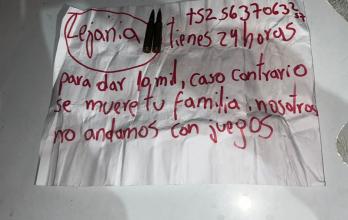 Lejania tienes 24 horas
para dar la mil, caso contrario
se muere tu familia. nosotros
no andamos con juegos